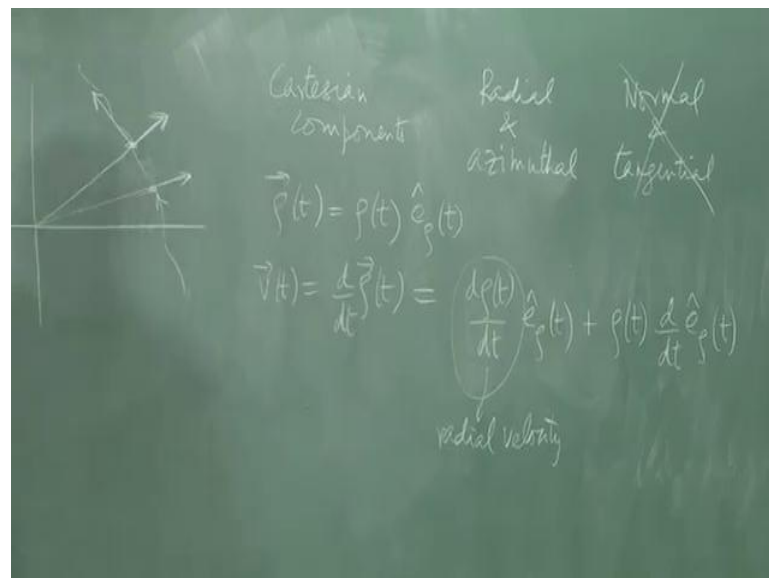 Cartesian components
Radial & azimuthal
Normal & tangential
$\vec{\rho}(t) = \rho(t) \hat{e}_{\rho}(t)$
$\vec{v}(t) = \frac{d}{dt} \vec{\rho}(t) = \frac{d\rho(t)}{dt} \hat{e}_{\rho}(t) + \rho(t) \frac{d}{dt} \hat{e}_{\rho}(t)$
radial velocity